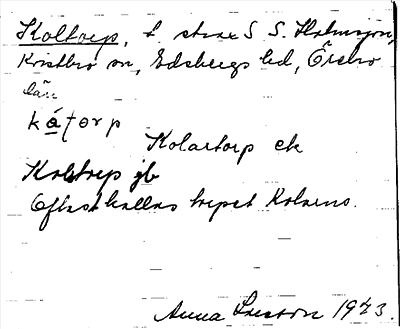 Koltorp, t.ströe S S. Holmsjön,
Kristbro sn, Edsbergs hd, Örebro
län
kátorp
Kolartorp ek
Kolstorp jb
Oftast kallas torpet Kolarns.
Anna Larsson 1923.